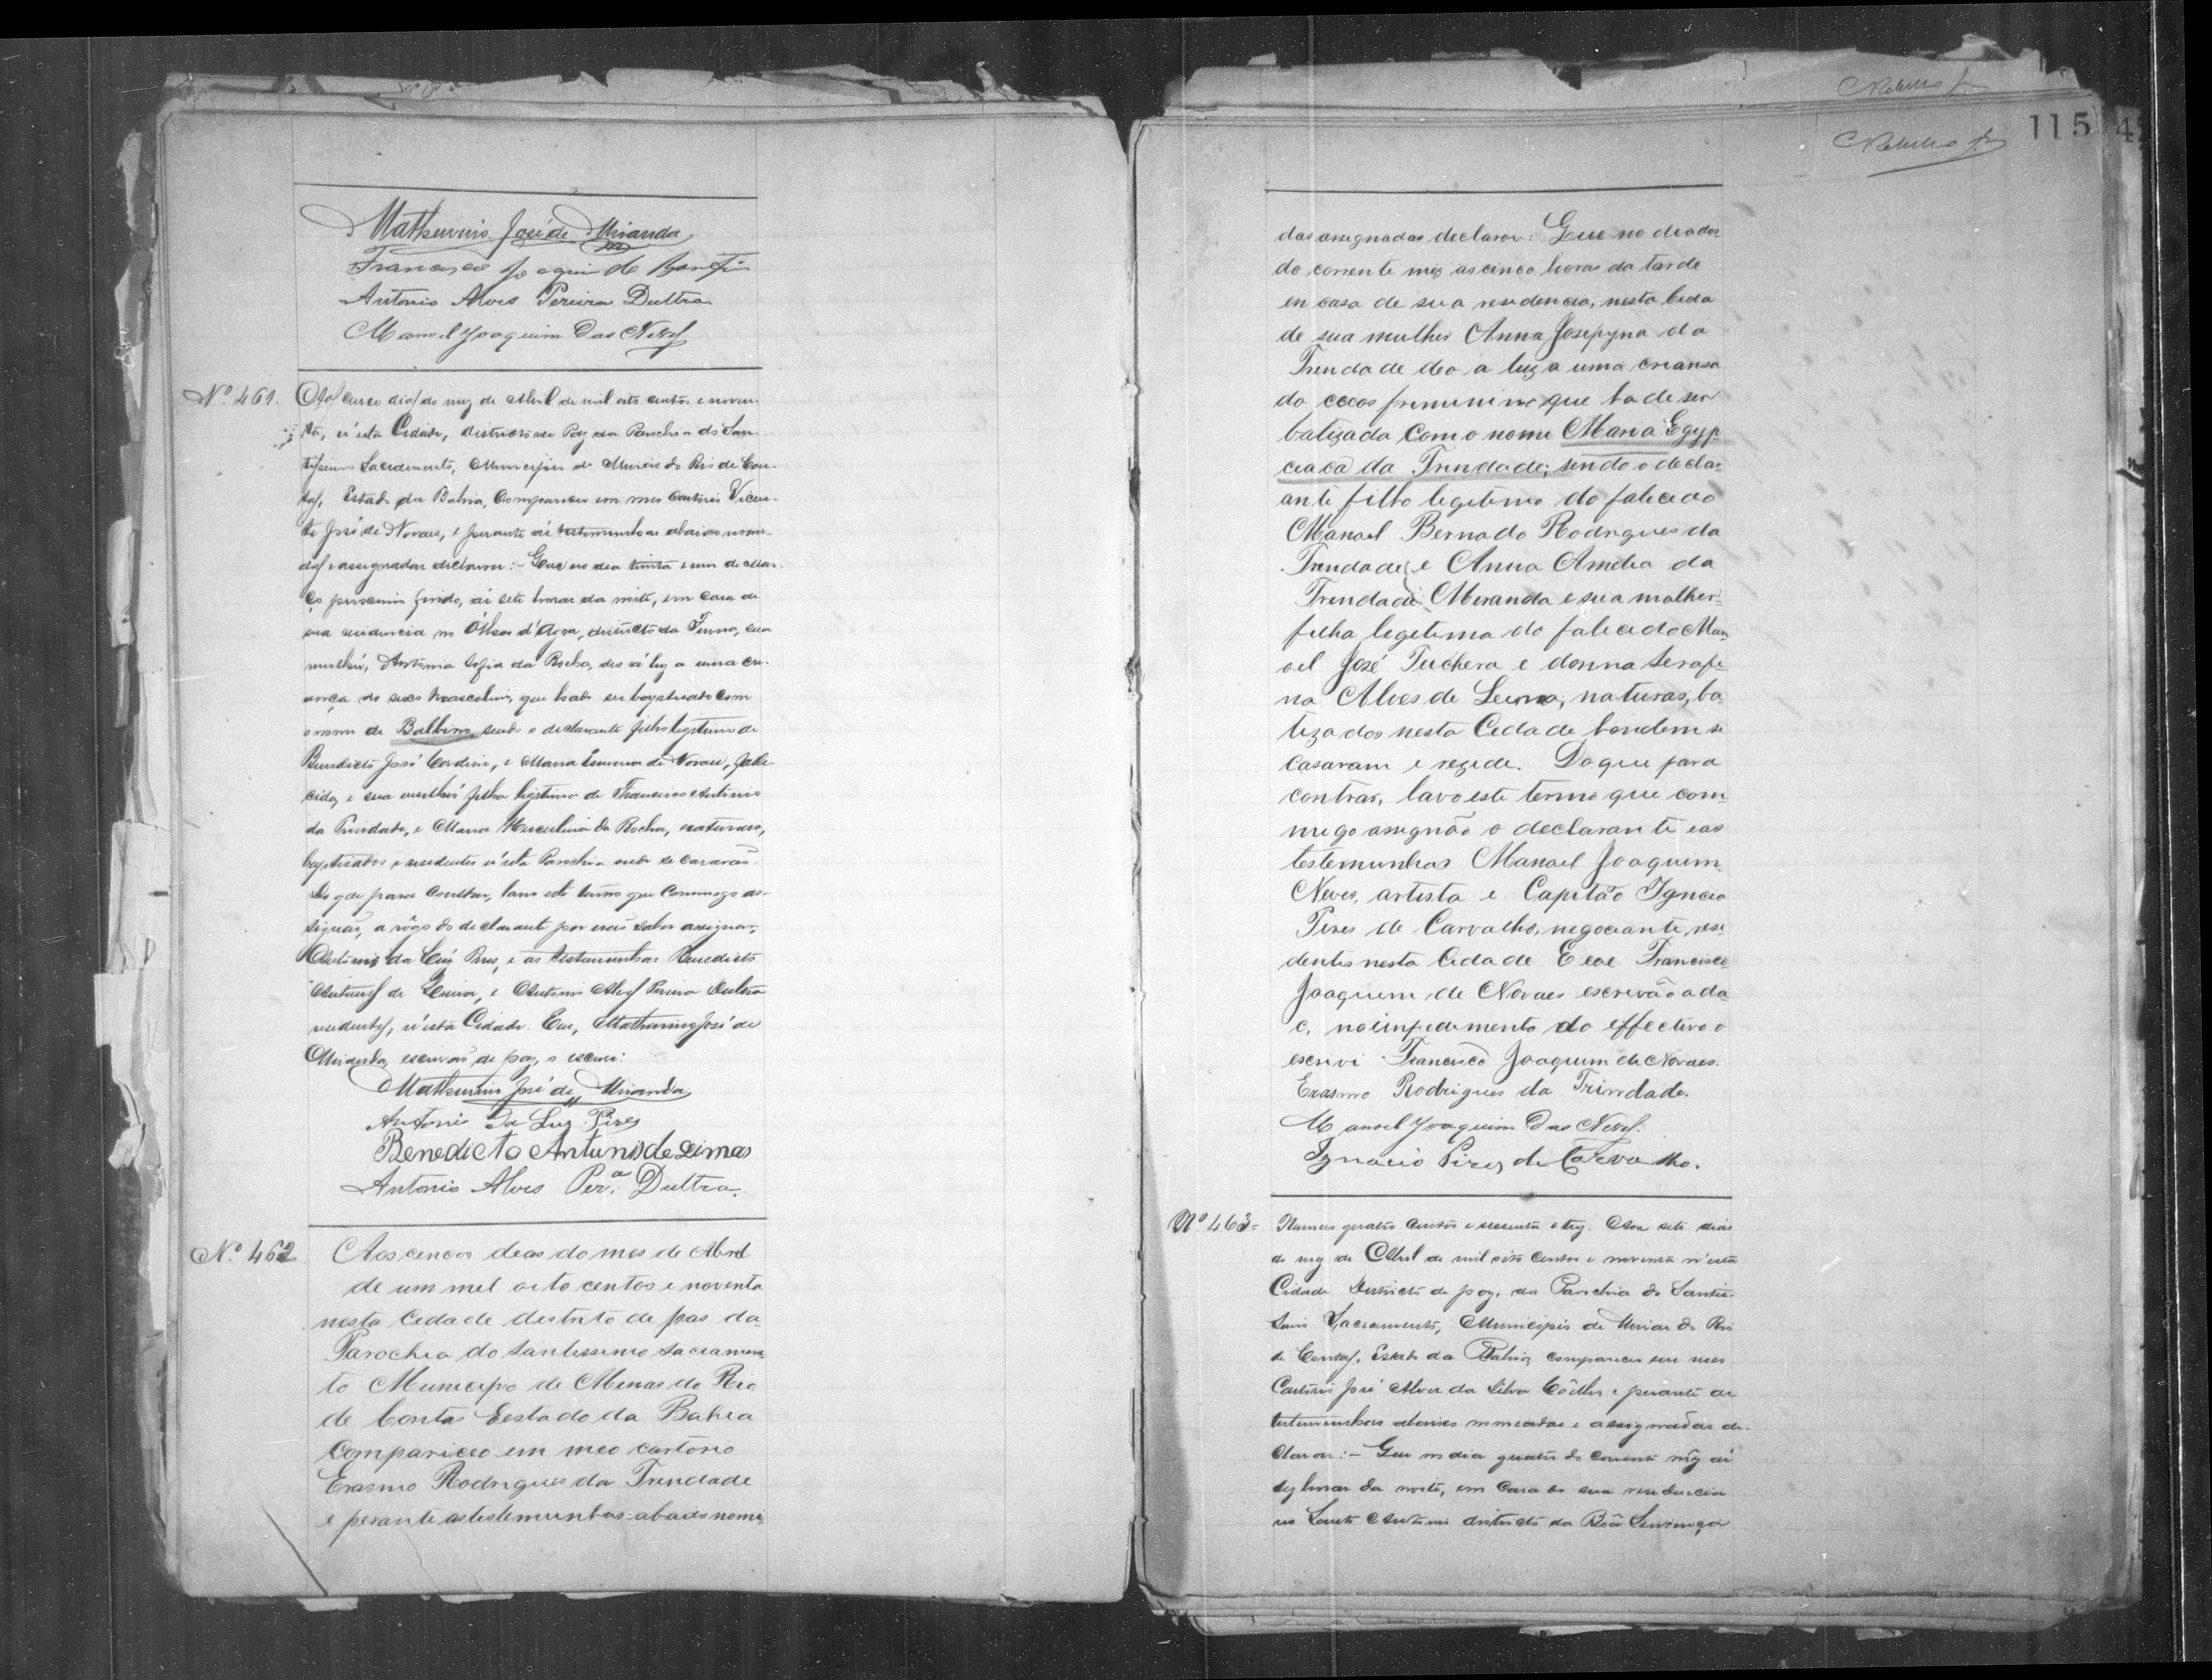 Mathurino José de Miranda
Francisco Joaquim do Bomfim
Antonio Alves Pereira Dultra
Manoel Joaquim Das Neves
Nº 461. Aos cinco dias do mez de Abril de mil oito centos e noven-
ta, n'esta Cidade, Districto de Paz da Parochia do San-
tissimo Sacramento, Municipio de Minas do Rio de Con-
tas, Estado da Bahia, Compareceu em meu Cartorio Vicen-
te José de Novaes, e perante as testemunhas abaixo nomia-
das e assignadas declarou:- Que no dia trinta e um de Mar-
ço proscimo findo, ás sete horas da noite, em casa de
sua residencia no Ôlhos d'Agoa, districto da Furna, sua
mulher, Antonia Sofia da Rocha, deo á luz a uma cri-
ança do sexo masculino, que hade ser baptisado com
o nome de Balbino sendo o declarante filho legitimo de
Benedicto José Cordeiro, e Maria de Novaes, falle-
cidos, e sua mulher filha legitima de Francisco Antonio
da Trindade, e Maria Herculina da Rocha, naturaes,
baptisados e residentes n'esta Parochia onde se casarão.
Do que para constar, lavro este termo que commigo as-
signão, a rôgo do declarante por não saber assignar,
Antonio da Luz Pires, e as testemunhas Benedicto
Antunes de Lima, e Antonio Alves Pereira Dultra
residentes, n'esta Cidade. Eu, Mathurino José de
Miranda, escrivão de paz, o escrevi:
Mathurino José de Miranda
Antonio Da Luz Pires
Benedicto Antunis de Limas
Antonio Alves Per.ª Dultra.
Nº 462 Aos cencos deas do mes de Abril
de um mel oito centos e noventa
nesta Cedade destrito de pas da
Parochia do Santessimo Sacramen
to Municipo de Menas do Rio
de Contas Eestado da Bahia
Compariceo em meo cartorio
Erasmo Rodrigues da Trendade
e perante as testemunhas abaixo nomi
C Rebello Jr
115
C Rebello Jr
das assegnadas declarou: Que no dia dos
do corrente mez as cinco horas da tarde
en casa de sua resedencia, nesta Ceda
de sua mulher Anna Josepyna da
Trendade deo a luz a uma creansa
do cecos fremenino que ha de ser
batizada Com o nome Maria Egyp
ciaca da Trendade; sendo o declar
ante filho legetimo do falecido
Manoel Bernado Rodrigues da
Trendade, e Anna Amelia da
Trendade Meranda e sua molher
felha legetima do falecido Man
oel José Tuchera e donna Serafe
na Alves de Leima, naturas, ba
tizados nesta Cedade hondem se
Casaram e rezede. Do que para
contrar, lavo este termo que com
mego assegnão o declarante eas
testemunhas Manoel Joaquim
Neves, artista e Capitão Ignacio
Peres de Carvalho, negociante, rese
dentes nesta Cedade E eoe Francisco
Joaquim de Novaes escrevão ada
c. no impedimento do effectivo o
escrivi Francisco Joaquim de Novaes.
Erasmo Rodrigues da Trindade.
Manoel Joaquim Das Neves.
Ignacio Pires de Carvalho.
Nº 463= Numero quatro centos e sessenta e trez. Aos sete dias
do mez de Abril de mil oito centos e noventa n'esta
Cidade Districto de paz, da Parochia do Santis-
simo Sacramento, Municipio de Minas do Rio
de Contas, Estado da Bahia, compareceu em meu
Cartorio José Alves da Silva Coêlho e perante as
testemunhas abaixo nomeadas e assignadas de-
clarou:- Que no dia quatro do corrente mêz ás
dez horas da noite, em Casa de sua residencia
no Santo Antonio districto da Bôa Sentença